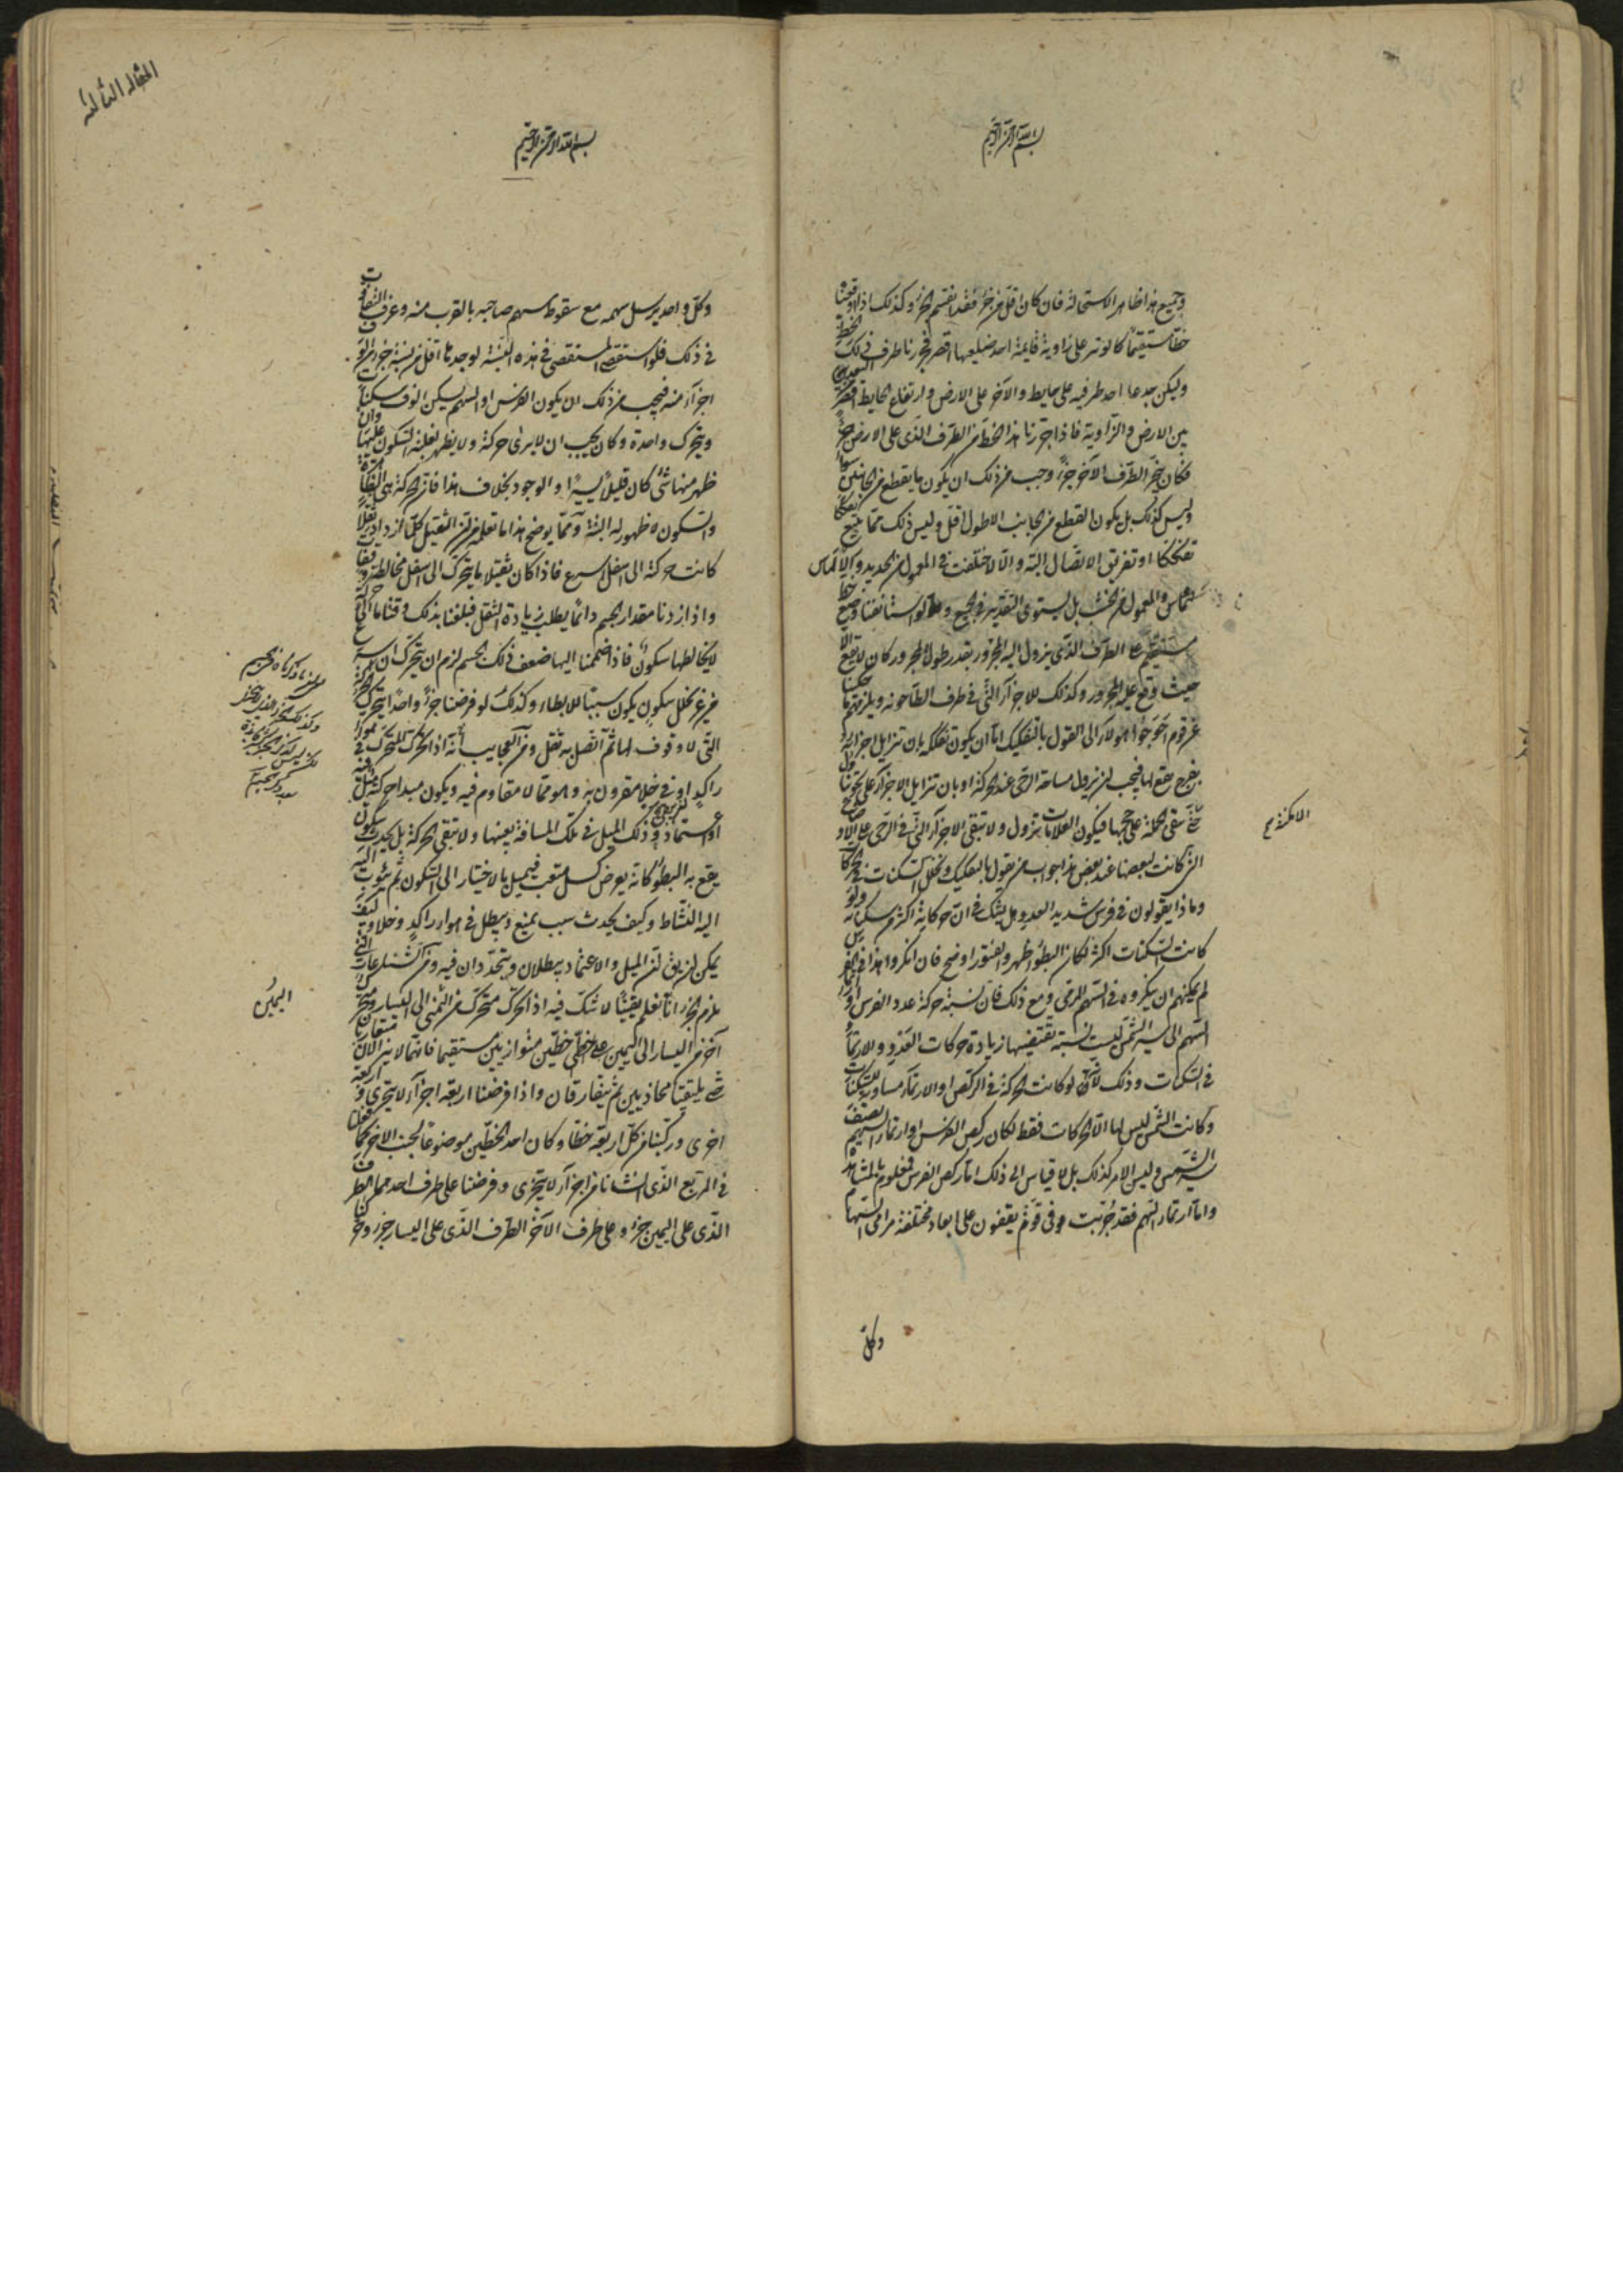 بسم الله الرحمن الرحيم
وجميع هذا ظاهر الاستحالة فان كان اقل من جزء فقد انقسم الجزء وكذلك اذا اوقعنا
خطا مستقيما كالوتر على زاوية قايمة احد ضلعيها اقصر فجررنا طرف ذلك الخط
وليكن جدعا احد طرفيه على حايط والآخر على الارض وارتفاع الحايط اقصر
بين الارض والزاوية فاذا جررنا هذا الخط من الطرف الذى على الارض جزءا
فكان يجر الطرف الآخر جزءا وجب من ذلك ان يكون ما يقطع من الجانبين سواء
وليس كذلك بل يكون القطع من الجانب الاطول اقل وليس ذلك مما يتبع
تفككا او تفريق الاتصال البتة والا لاختلفت فى المعمول من الحديد والالماس
والمعمول من الخشب بل يستوى التقدير فى الجميع ولو استأنفنا وضع خط
مستقيم على الطرف الذى يزول اليه المجرور بقدر طول المجرور كان لا يقع الا
حيث وقع عليه المجرور وكذلك للاجزآء التى فى طرف الطاحونة ويلزمهم ما حكينا
عن قوم اخرجوا هؤلاء الى القول بالتفكيك اما ان يكون تفككه بان تزايل اجزاؤه
بفرج يقع لها فيجب ان تزول مساحة الرحى عند الحركة او بان تزايل الاجزآء على
حتى تبقى الجملة على حجمها فيكون العلامات تزول ولا تبقى الاجزآء التى فى الرحى على الاوضاع
التى كانت لبعضها عند بعض هذا جواب من يقول بالتفكيك وتخلل السكنات فى الحركات
وماذا يقولون فى فرس شديد العدو هل يشك فى ان حركاته اكثر من سكناته ولو
كانت السكنات اكثر لكان البطؤ اظهر والفتور اوضح فان انكروا هذا فى الفرس
لم يمكنهم ان ينكروه فى السهم المرمى ومع ذلك فان نسبة حركة عدو الفرس او ارتماء
السهم الى سير الشمس ليست نسبة تقتضيها زيادة حركات العدو والارتماء
فى السكنات وذلك لانه لو كانت الحركة فى الركض او الارتماء مساوية للسكنات
وكانت الشمس ليس لها الا الحركات فقط لكان ركض الفرس او ارتماء السهم نصف
سير الشمس وليس الامر كذلك بل لا قياس الى ذلك اما ركض الفرس فمعلوم بالمشاهدة
واما ارتماء السهم فقد جربت وفى قوم يقفون على ابعاد مختلفة مرامى السهام
الامكنة صح
وكل
المقالة الثالثة
بسم الله الرحمن الرحيم
وكل واحد يرسل سهمه مع سقوط سهم صاحبه بالقرب منه وعرف التفاوت
فى ذلك فلو استقصى المستقصى فى هذه النسبة لوجدها اقل من نسبة جزء من الوف
اجزآء منه فيجب من ذلك ان يكون الفرس او السهم يسكن الوف سكنات
ويتحرك واحدة وكان يجب ان لا يرى حركة ولا يظهر لغلبة السكون عليها وان
ظهر منها شئ كان قليلا يسيرا والوجود بخلاف هذا فان الحركة هى الظاهرة
والسكون لا ظهور له البتة ومما يوضح هذا ما تعلم من ان الثقيل كلما ازداد ثقلا
كانت حركته الى اسفل اسرع فاذا كان ثقيلا ما يتحرك الى اسفل مخالطة وقفات
واذا زدنا مقدار الجسم دائما يطلب زيادة الثقل فبلغنا بذلك وقتا ما الى حركة
لا يخالطها سكون فاذا ضممنا اليها ضعف ذلك الجسم لزم ان يتحرك اسرع
من غير تخلل سكون يكون سببا للابطاء وكذلك لو فرضنا جزءا واحدا يتحرك الحركة
التى لا وقوف لها ثم اتصل به ثقل ومن العجايب انه اذا تحرك المتحرك فى هواء
راكد او فى خلاء مقرون به وهو مما لا مقاوم فيه ويكون مبدأ حركته مثل
او اعتماد وذلك الميل فى تلك المسافة بعينها ولا تبقى الحركة بل يحدث سكون
يقع به البطؤ كأنه يعرض كسل متعب فيميل بالاختيار الى السكون ثم يثوب
اليه النشاط وكيف يحدث سبب يمنع ويبطل فى هواء راكد وخلاء وكيف
يمكن ان يق ان الميل والاعتماد يبطلان ويتجددان فيه ومن الشناعات التى
يلزم الجزء انا نعلم يقينا لا شك فيه اذا تحرك متحرك من اليمنى الى اليسار ومتحرك
آخر من اليسار الى اليمين على خطين متوازيين مستقيما فانهما لا يزالان يتقاربان
حتى يلتقيا محاذيين ثم يتفارقان واذا فرضنا اربعة اجزآء لا يتجزى واربعة
اخرى وركبنا من كل اربعة خطا وكان احد الخطين موضوعا بجنب الاخر كما فعلنا
فى المربع الذى انشأنا من اجزآء لا يتجزى وفرضنا على طرف احدهما الطرف
الذى على اليمين جزء وعلى طرف الآخر الطرف الذى على اليسار جزء وحركنا
اليمين